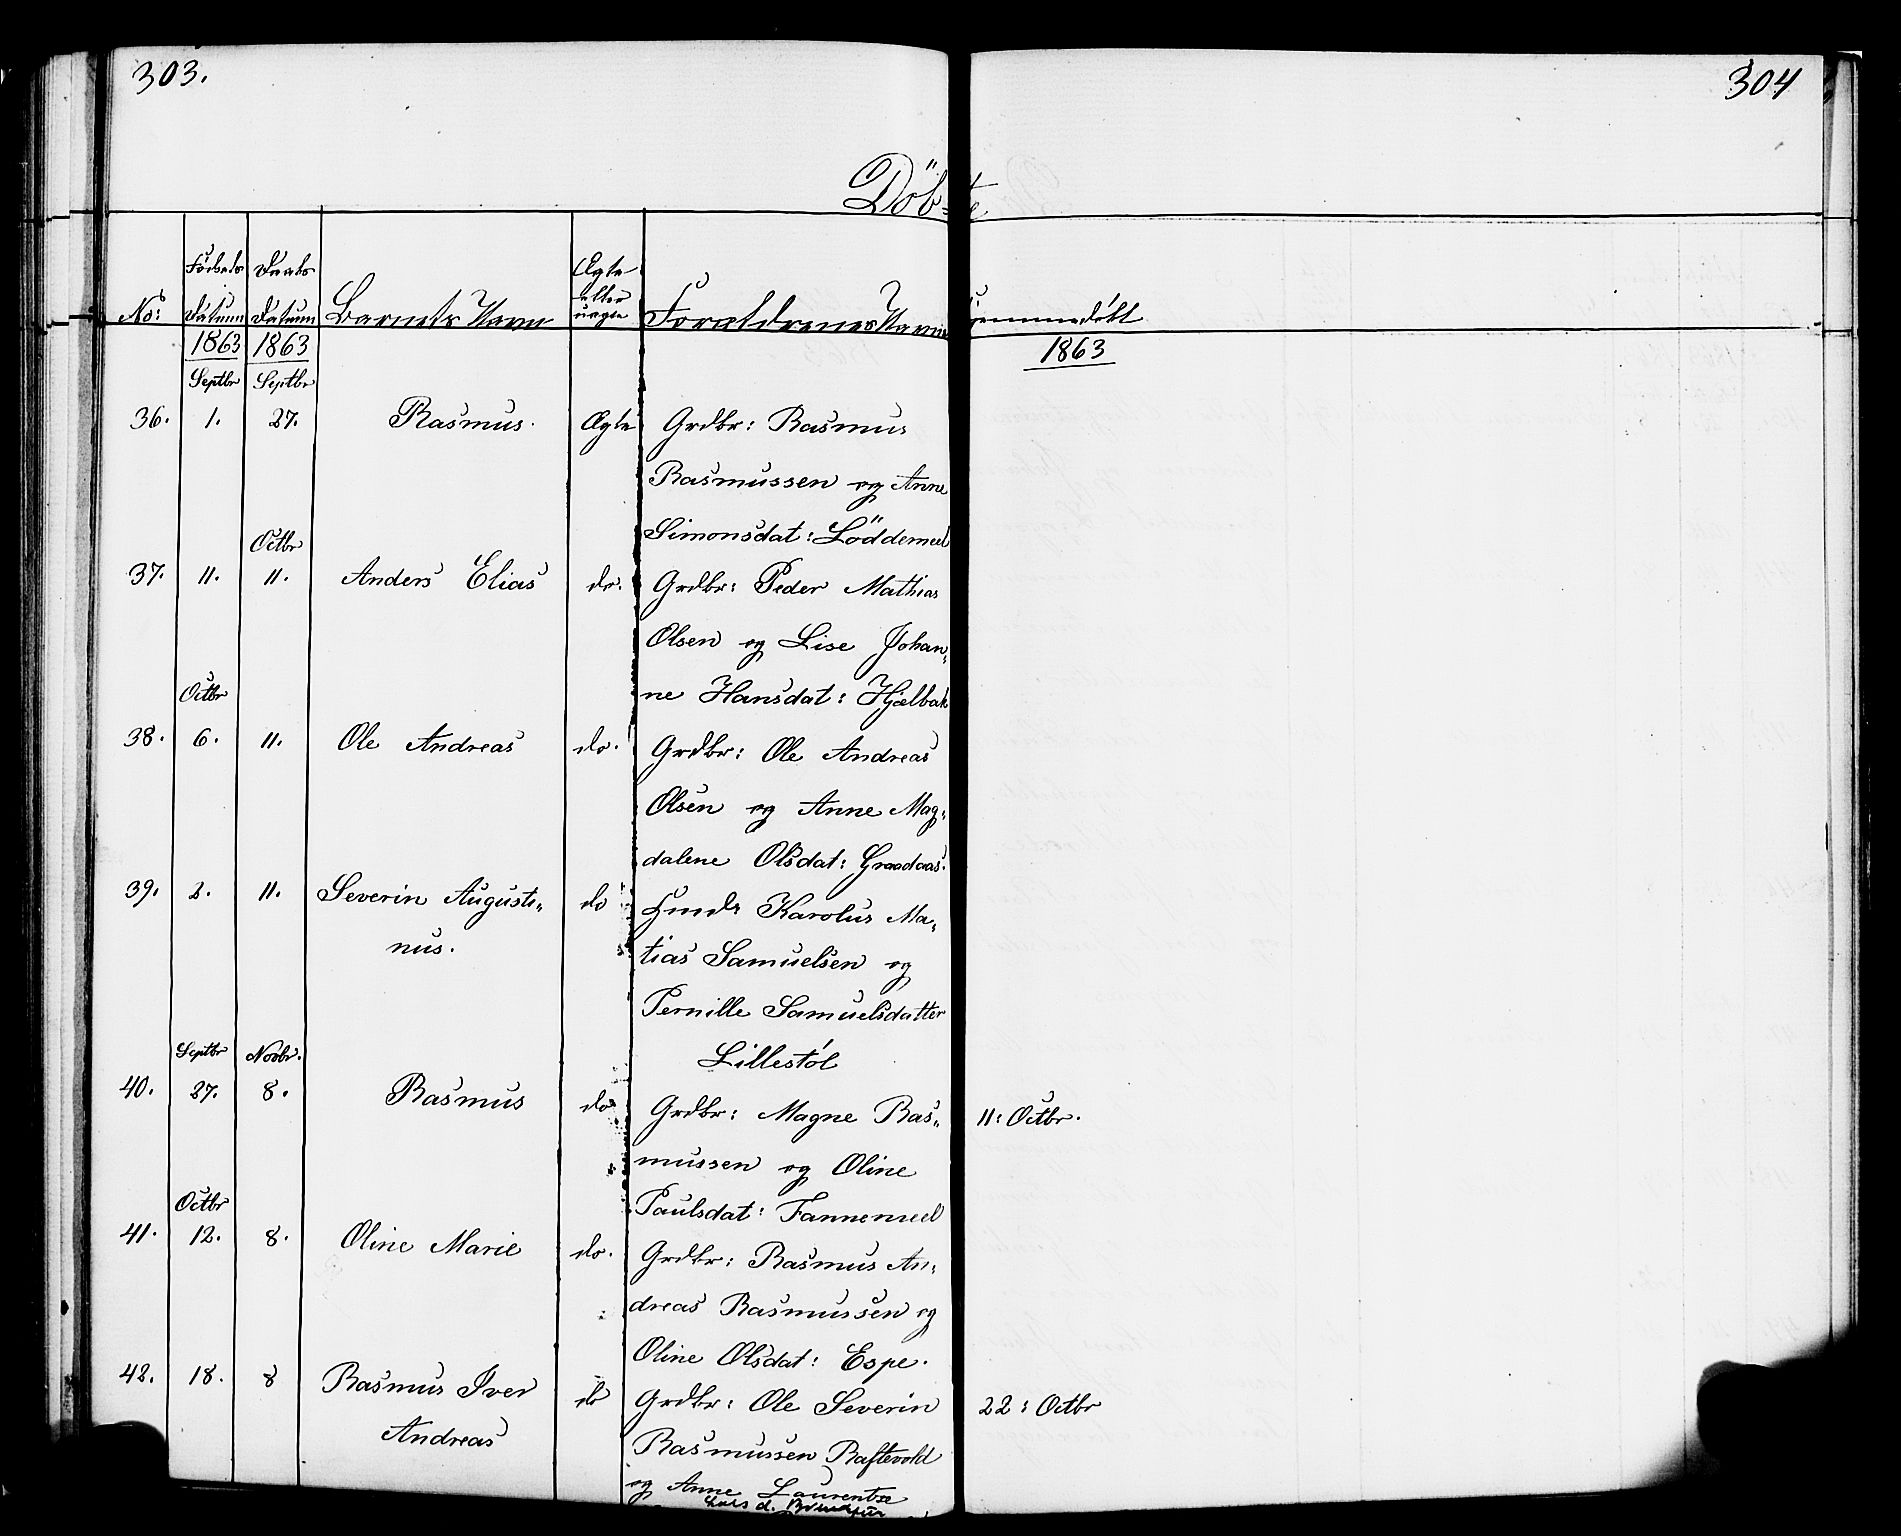 303.
304
Döbte
No:
Födsels
Datum
Daabs
Datum
Barnets Navn
Ægte
eller
uægte
Forældrenes Navne
Hjemmedöbt
1863
1863
1863
Septbr
Septbr
36. 1. 27. Rasmus. Ægte Grdbr: Rasmus
Rasmussen og Anne
Simonsdat: Löddemeel
Octbr
37. 11. 11. Anders Elias do. Grdbr: Peder Mathias
Olsen og Lise Johan„
ne Hansdat: Hjelbak
Octbr
38. 6. 11. Ole Andreas do. Grdbr: Ole Andreas
Olsen og Anne Mag„
dalene Olsdat: Graadaas.
39. 2. 11. Severin Augusti„ do Karolus Ma„
nus.
tias Samuelsen og
Pernille Samuelsdatter
Lillestöl
Septbr Novbr.
40. 27. 8. Rasmus do Grdbr: Magne Ras„ 11: Octbr.
mussen og Oline
Paulsdat: Fannemeel
Octbr
41. 12. 8. Oline Marie do. Grdbr: Rasmus An„
dreas Rasmussen og
Oline Olsdat: Espe.
42. 18. 8 Rasmus Iver do Grdbr: Ole Severin 22: Octbr
Andreas
Rasmussen Raftevold
og Anne Laurentse
Lars d.